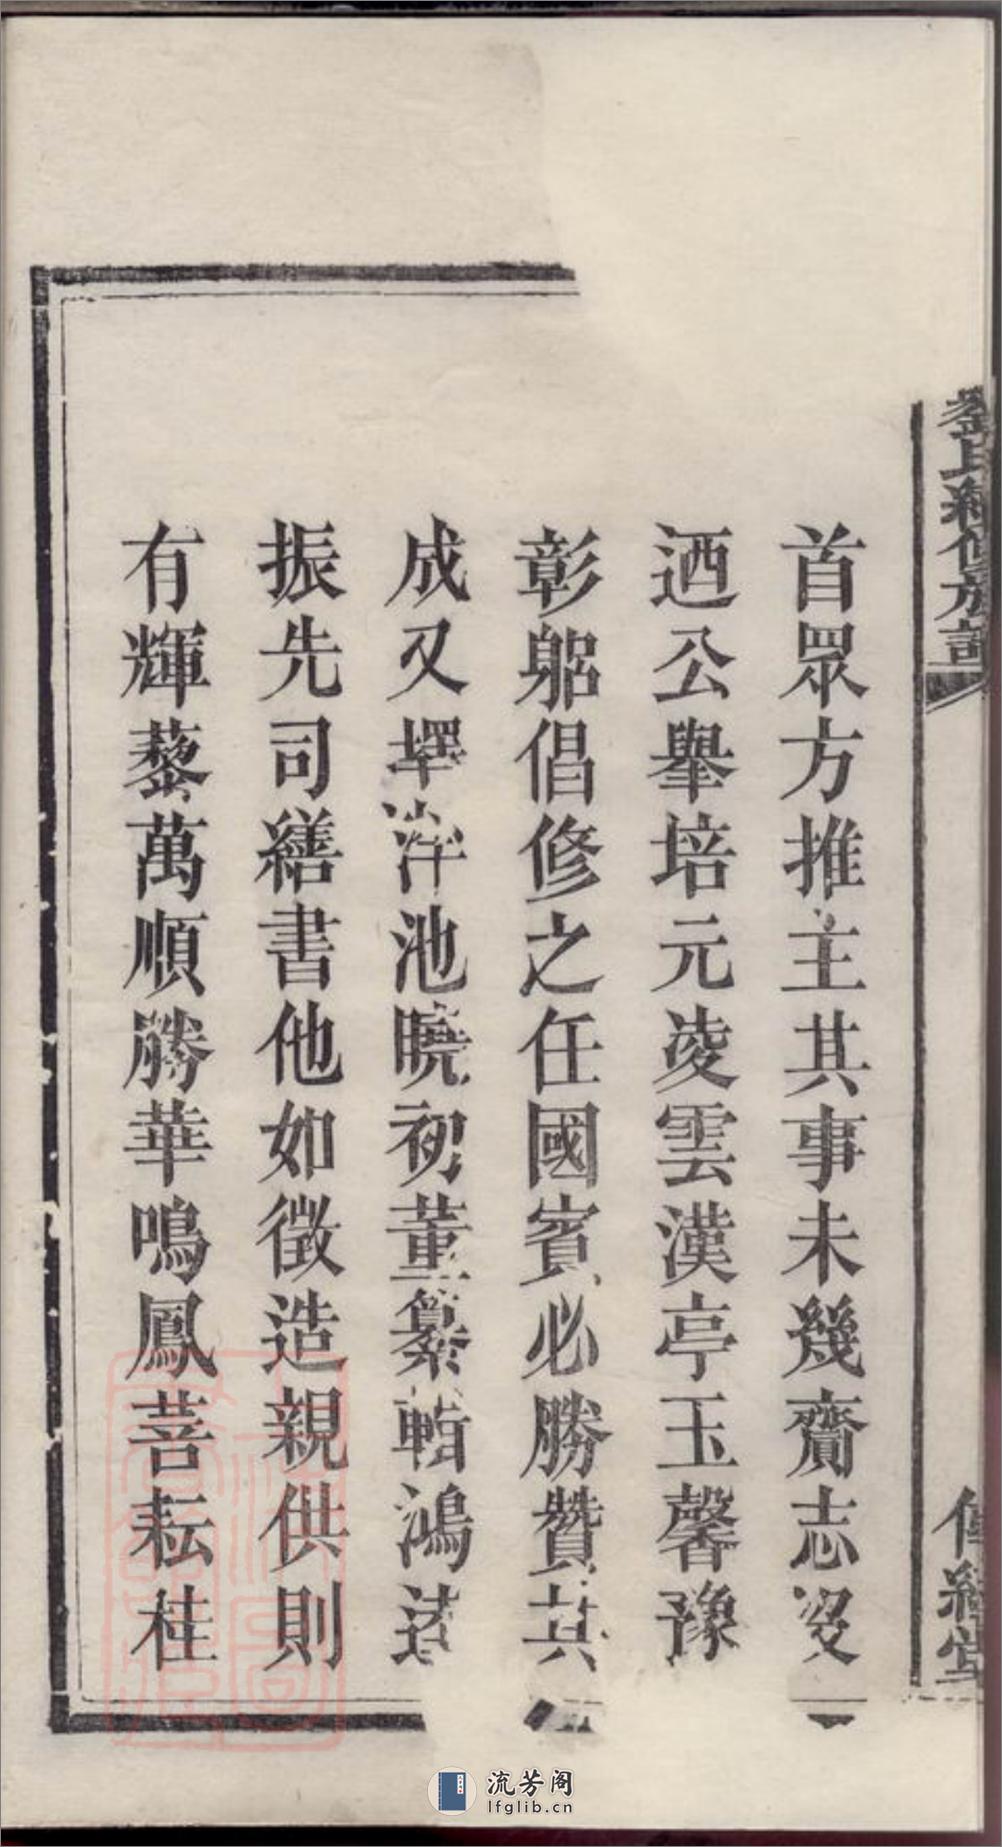 劉氏續修族譜
首眾方推主其事未幾齎志沒
迺公舉培元凌雲漢亭玉馨豫
彰躬倡修之任國賓必勝贊其
成又擇泮池曉初董纂輯鴻遠
振先司繕書他如徵造親供則
有輝藜萬順勝華鳴鳳菩耘桂
傳經堂
流芳阁
lfglib.cn